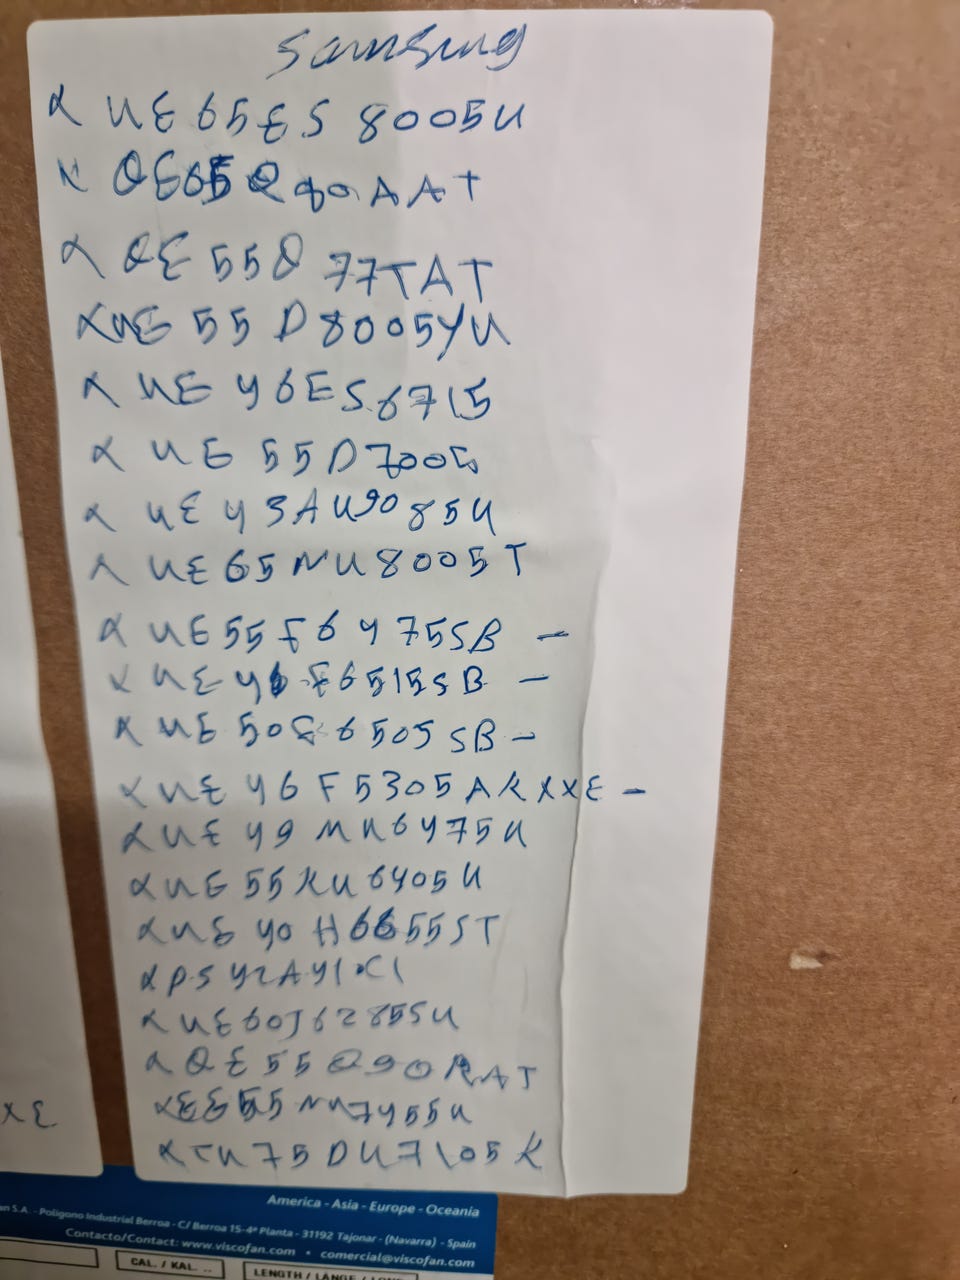 Samsung
x UE65ES8005U
x QE65Q80AAT
x QE55Q77TAT
x UE55D8005YU
x UE46ES6715
x UE55D7005
x UE43AU9085U
x UE65NU8005T
x UE55F6475SB -
x UE46F6515SB -
x UE50F6505SB -
x UE46F5305AKXXE -
x UE49MU6475U
x UE55KU6405U
x UE40H6655ST
x PS42A41.C1
x UE60J6285SU
x QE55Q90RAT
x UE55NU7455U
x TU75DU7105K
XE
America - Asia - Europe - Oceania
an S.A. - Polígono Industrial Berroa - C/ Berroa 15-4ª Planta - 31192 Tajonar - (Navarra) - Spain
Contacto/Contact: www.viscofan.com • comercial@viscofan.com
CAL. / KAL. ..
LENGTH / LÄNGE /